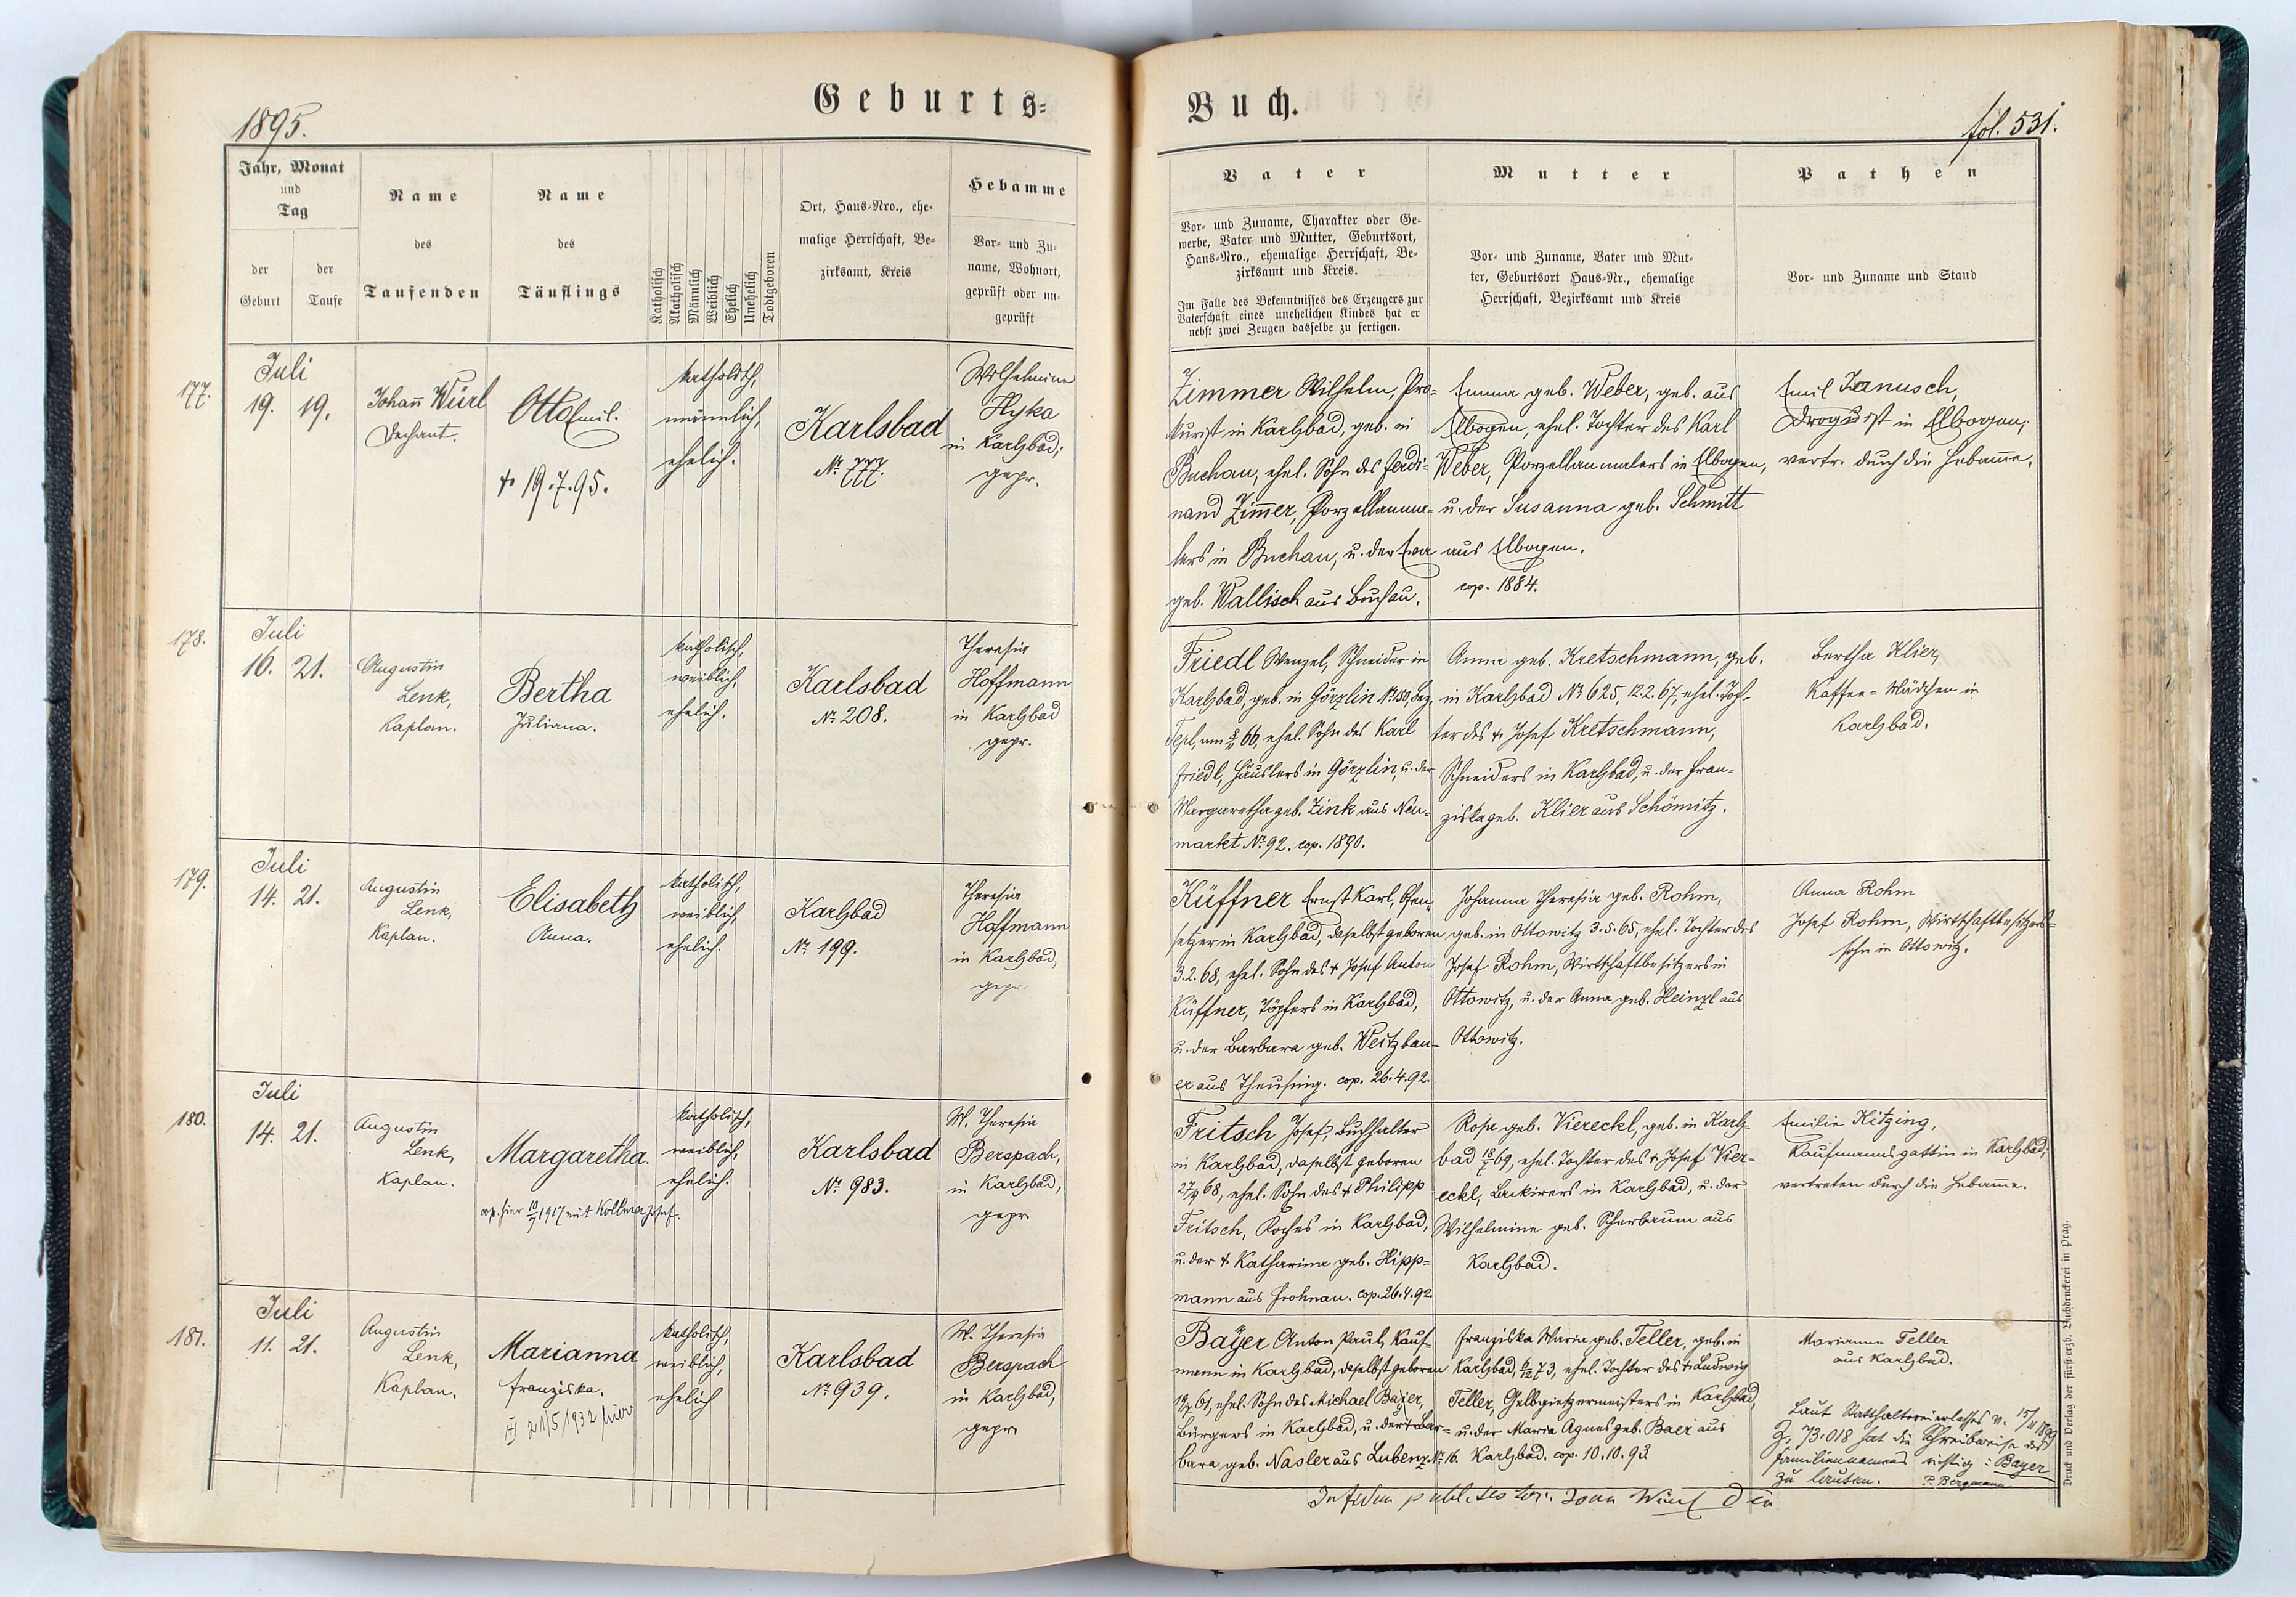 1895.
Geburts=
Buch.
fol. 531.
Jahr, Monat
und
Tag
der
Geburt
der
Taufe
Name
des
Taufenden
Name
des
Täuflings
Katholisch
Akatholisch
Männlich
Weiblich
Ehelich
Unehelich
Todtgeboren
Ort, Haus-Nro., ehe-
malige Herrschaft, Be-
zirksamt, Kreis
Hebamme
Vor- und Zu-
name, Wohnort,
geprüft oder un-
geprüft
Vater
Vor- und Zuname, Charakter oder Ge-
werbe, Vater und Mutter, Geburtsort,
Haus-Nro., ehemalige Herrschaft, Be-
zirksamt und Kreis.
Im Falle des Bekenntnisses des Erzeugers zur
Vaterschaft eines unehelichen Kindes hat er
nebst zwei Zeugen dasselbe zu fertigen.
Mutter
Vor- und Zuname, Vater und Mut-
ter, Geburtsort Haus-Nr., ehemalige
Herrschaft, Bezirksamt und Kreis
Pathen
Vor- und Zuname und Stand
177.
Juli
19. 19.
Johann Würl
Dechant.
Otto Emil.
† 19.7.95.
katholisch,
männlich,
ehelich.
Karlsbad
№ 777.
Wilhelmine
Hyka
in Karlsbad;
gepr.
Zimmer Wilhelm, Pro=
kurist in Karlsbad, geb. in
Buchau, ehel. Sohn des Ferdi=
nand Zimmer, Porzellanma=
lers in Buchau, u. der Eva
geb. Wallisch aus Buchau.
Emma geb. Weber, geb. aus
Elbogen, ehel. Tochter des Karl
Weber, Porzellanmalers in Elbogen,
u. der Susanna geb. Schmitt
aus Elbogen.
cop. 1884.
Emil Janusch,
Droguist in Elbogen;
vertr. durch die Hebamme.
178.
Juli
16. 21.
Augustin
Lenk,
Kaplan.
Bertha
Juliana.
katholisch,
weiblich,
ehelich.
Karlsbad
№ 208.
Theresia
Hoffmann
in Karlsbad
gepr.
Friedl Wenzel, Schneider in
Karlsbad, geb. in Görzlin № 150, Bez.
Tepl, am 66, ehel. Sohn des Karl
Friedl, Häuslers in Görzlin, u. der
Margaretha geb. Zink aus Neu=
markt № 92. cop. 1890.
Anna geb. Kretschmann, geb.
in Karlsbad № 625, 12.2.67, ehel. Toch-
ter des † Josef Kretschmann,
Schneiders in Karlsbad, u. der Fran=
ziska geb. Klier aus Schömitz.
Bertha Klier,
Kaffee=Mädchen in
Karlsbad.
179.
Juli
14. 21.
Augustin
Lenk,
Kaplan.
Elisabeth
Anna.
katholisch,
weiblich,
ehelich.
Karlsbad
№ 199.
Theresia
Hoffmann
in Karlsbad,
gepr.
Küffner Ernst Karl, Ofen=
setzer in Karlsbad, daselbst geboren
3.2.68, ehel. Sohn des † Josef Anton
Küffner, Töpfers in Karlsbad,
u. der Barbara geb. Weitzbau=
er aus Theusing. cop. 26.4.92.
Johanna Theresia geb. Rohm,
geb. in Ottowitz 3.5.65, ehel. Tochter des
Josef Rohm, Wirtschaftbesitzers in
Ottowitz, u. der Anna geb. Heinzl aus
Ottowitz.
Anna Rohm
Josef Rohm, Wirtschaftbesitzers=
sohn in Ottowitz.
180.
Juli
14. 21.
Augustin
Lenk,
Kaplan.
Margaretha.
cop. hier 10/7 1917 mit Kollma Josef.
katholisch,
weiblich,
ehelich.
Karlsbad
№ 983.
M. Theresia
Berspach,
in Karlsbad,
gepr.
Fritsch Josef, Buchhalter
in Karlsbad, daselbst geboren
68, ehel. Sohn des † Philipp
Fritsch, Koches in Karlsbad,
u. der † Katharina geb. Hipp=
mann aus Frohnau. cop. 26.4.92
Rosa geb. Viereckl, geb. in Karls=
bad 69, ehel. Tochter des † Josef Vier=
eckl, Lackirers in Karlsbad, u. der
Wilhelmine geb. Scherbaum aus
Karlsbad.
Emilie Kitzing,
Kaufmannsgattin in Karlsbad;
vertreten durch die Hebamme.
181.
Juli
11. 21.
Augustin
Lenk,
Kaplan.
Marianna
Franziska.
21/5 1932 hier
katholisch,
weiblich,
ehelich
Karlsbad
№ 939.
M. Theresia
Berspach
in Karlsbad,
gepr.
Bayer Anton Paul, Kauf=
mann in Karlsbad, daselbst geboren
61, ehel. Sohn des Michael Bayer,
Bürgers in Karlsbad, u. der † Bar=
bara geb. Nasler aus Lubenz № 16.
Franziska Maria geb. Teller, geb. in
Karlsbad, 73, ehel. Tochter des † Ludwig
Teller, Gelbgießermeisters in Karlsbad,
u. der Maria Agnes geb. Baer aus
Karlsbad. cop. 10.10.93
Marianna Teller
aus Karlsbad.
Laut Statthaltereierlasses v. 1899
Z. 73.018 hat die Schreibweise des
Familiennamens richtig: Bayer
zu lauten. P. Bergmann
Druck und Verlag der fürst-erzb. Buchdruckerei in Prag.